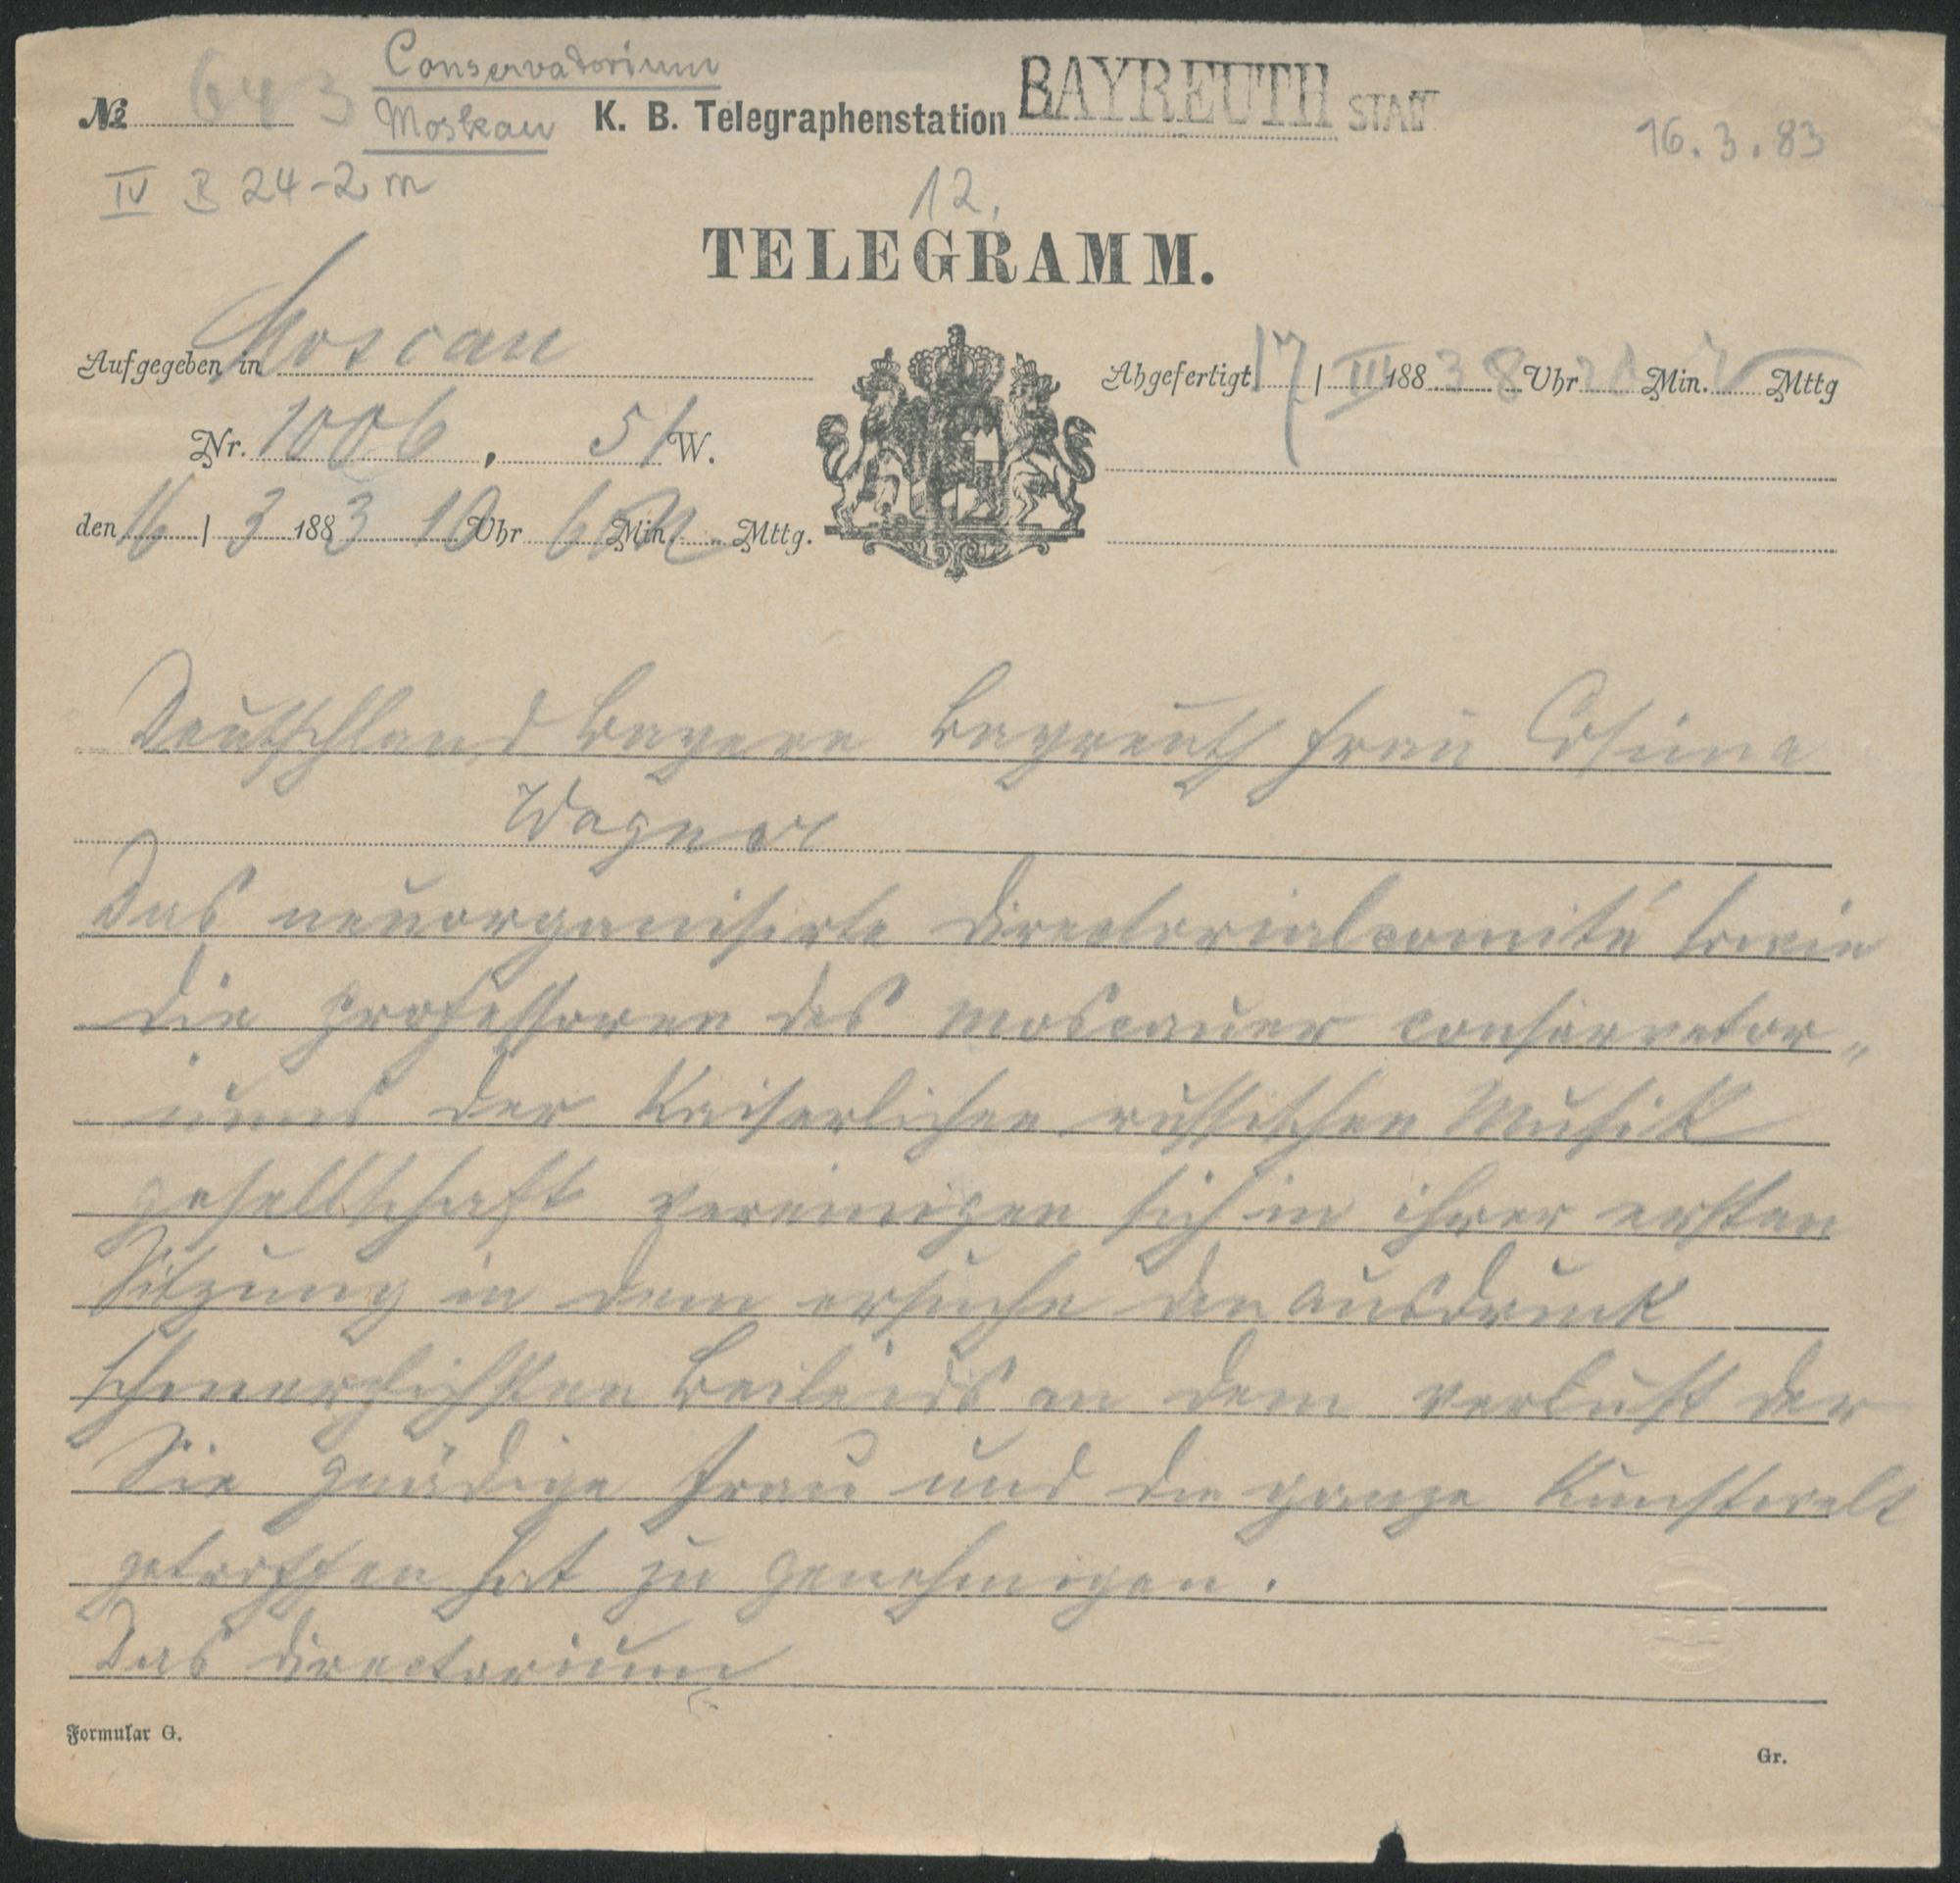 № 643 Conservatorium
Moskau K. B. Telegraphenstation BAYREUTH STADT 16.3.83
IV B 24-2 m
12.
TELEGRAMM.
Aufgegeben in Moscau
Abgefertigt 17 / III 1883 8 Uhr 21 Min. V Mttg
Nr. 1006, 51 W.
den 16 / 3 1883 10 Uhr 6 Min. Mttg.
Deutschland bayern bayreuth frau Cosima
Wagner
Das neuorganisirte directorialcomité sowie
die professoren des moscauer conservator„
iums der Kaiserlichen russischen Musik
gesellschaft vereinigen sich in ihrer ersten
Sitzung in dem ersuche den ausdruck
schmerzlichsten beileids an dem verlust der
Sie gnädige frau und die ganze Kunstwelt
getroffen hat zu genehmigen.
Das directorium
Formular G.
Gr.